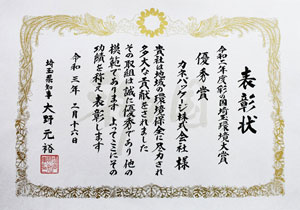 表彰状
令和二年度彩の国埼玉環境大賞
優秀賞
カネパッケージ株式会社 様
貴社は地域の環境保全に尽力され
多大な貢献をされました
その取組は誠に優秀であり他の
模範であります よってここにその
功績を称え表彰します
令和三年二月十六日
埼玉県知事 大野元裕